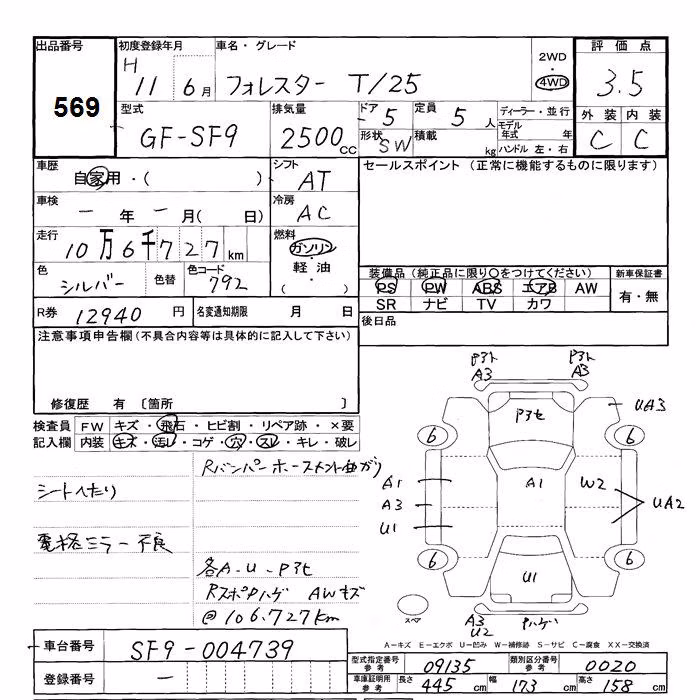 出品番号
569
初度登録年月
H 11 6月
車名・グレード
フォレスター T/25
2WD
4WD
評価点
3.5
外装 内装
C C
型式
GF-SF9
排気量
2500cc
ドア 5
形状 SW
定員 5人
積載 kg
ディーラー・並行
モデル年式 年
ハンドル 左・右
車歴
自家用・( )
シフト
AT
セールスポイント (正常に機能するものに限ります)
車検
ー年ー月( 日)
冷房
AC
走行
10万6千727km
燃料
ガソリン
軽油
( )
色
シルバー
色替
色コード
792
装備品(純正品に限り○をつけてください)
PS PW ABS エアB AW
SR ナビ TV カワ
新車保証書
有・無
R券 12940円
名変通知期限 月 日
後日品
注意事項申告欄(不具合内容等は具体的に記入して下さい)
修復歴 有 〔箇所 〕
検査員記入欄
FW キズ・飛石・ヒビ割・リペア跡・×要
内装 キズ・汚レ・コゲ・穴・スレ・キレ・破レ
Rバンパーホースメント曲がり
シートへたり
電格ミラー不良
各A-U-Pヨセ
RスポPハゲ AWキズ
@106.727km
Pヨト A3
Pヨト A3
Pヨセ
UA3
6
6
A1
A3
U1
A1
W2
UA2
6
6
U1
スペア
A3 U2
Pハゲ
A-キズ E-エクボ U-凹み W-補修跡 S-サビ C-腐食 XX-交換済
車台番号
SF9-004739
登録番号
ー
型式指定番号 参考
09135
類別区分番号 参考
0020
車庫証明用 参考
長さ 445cm 幅 173cm 高さ 158cm